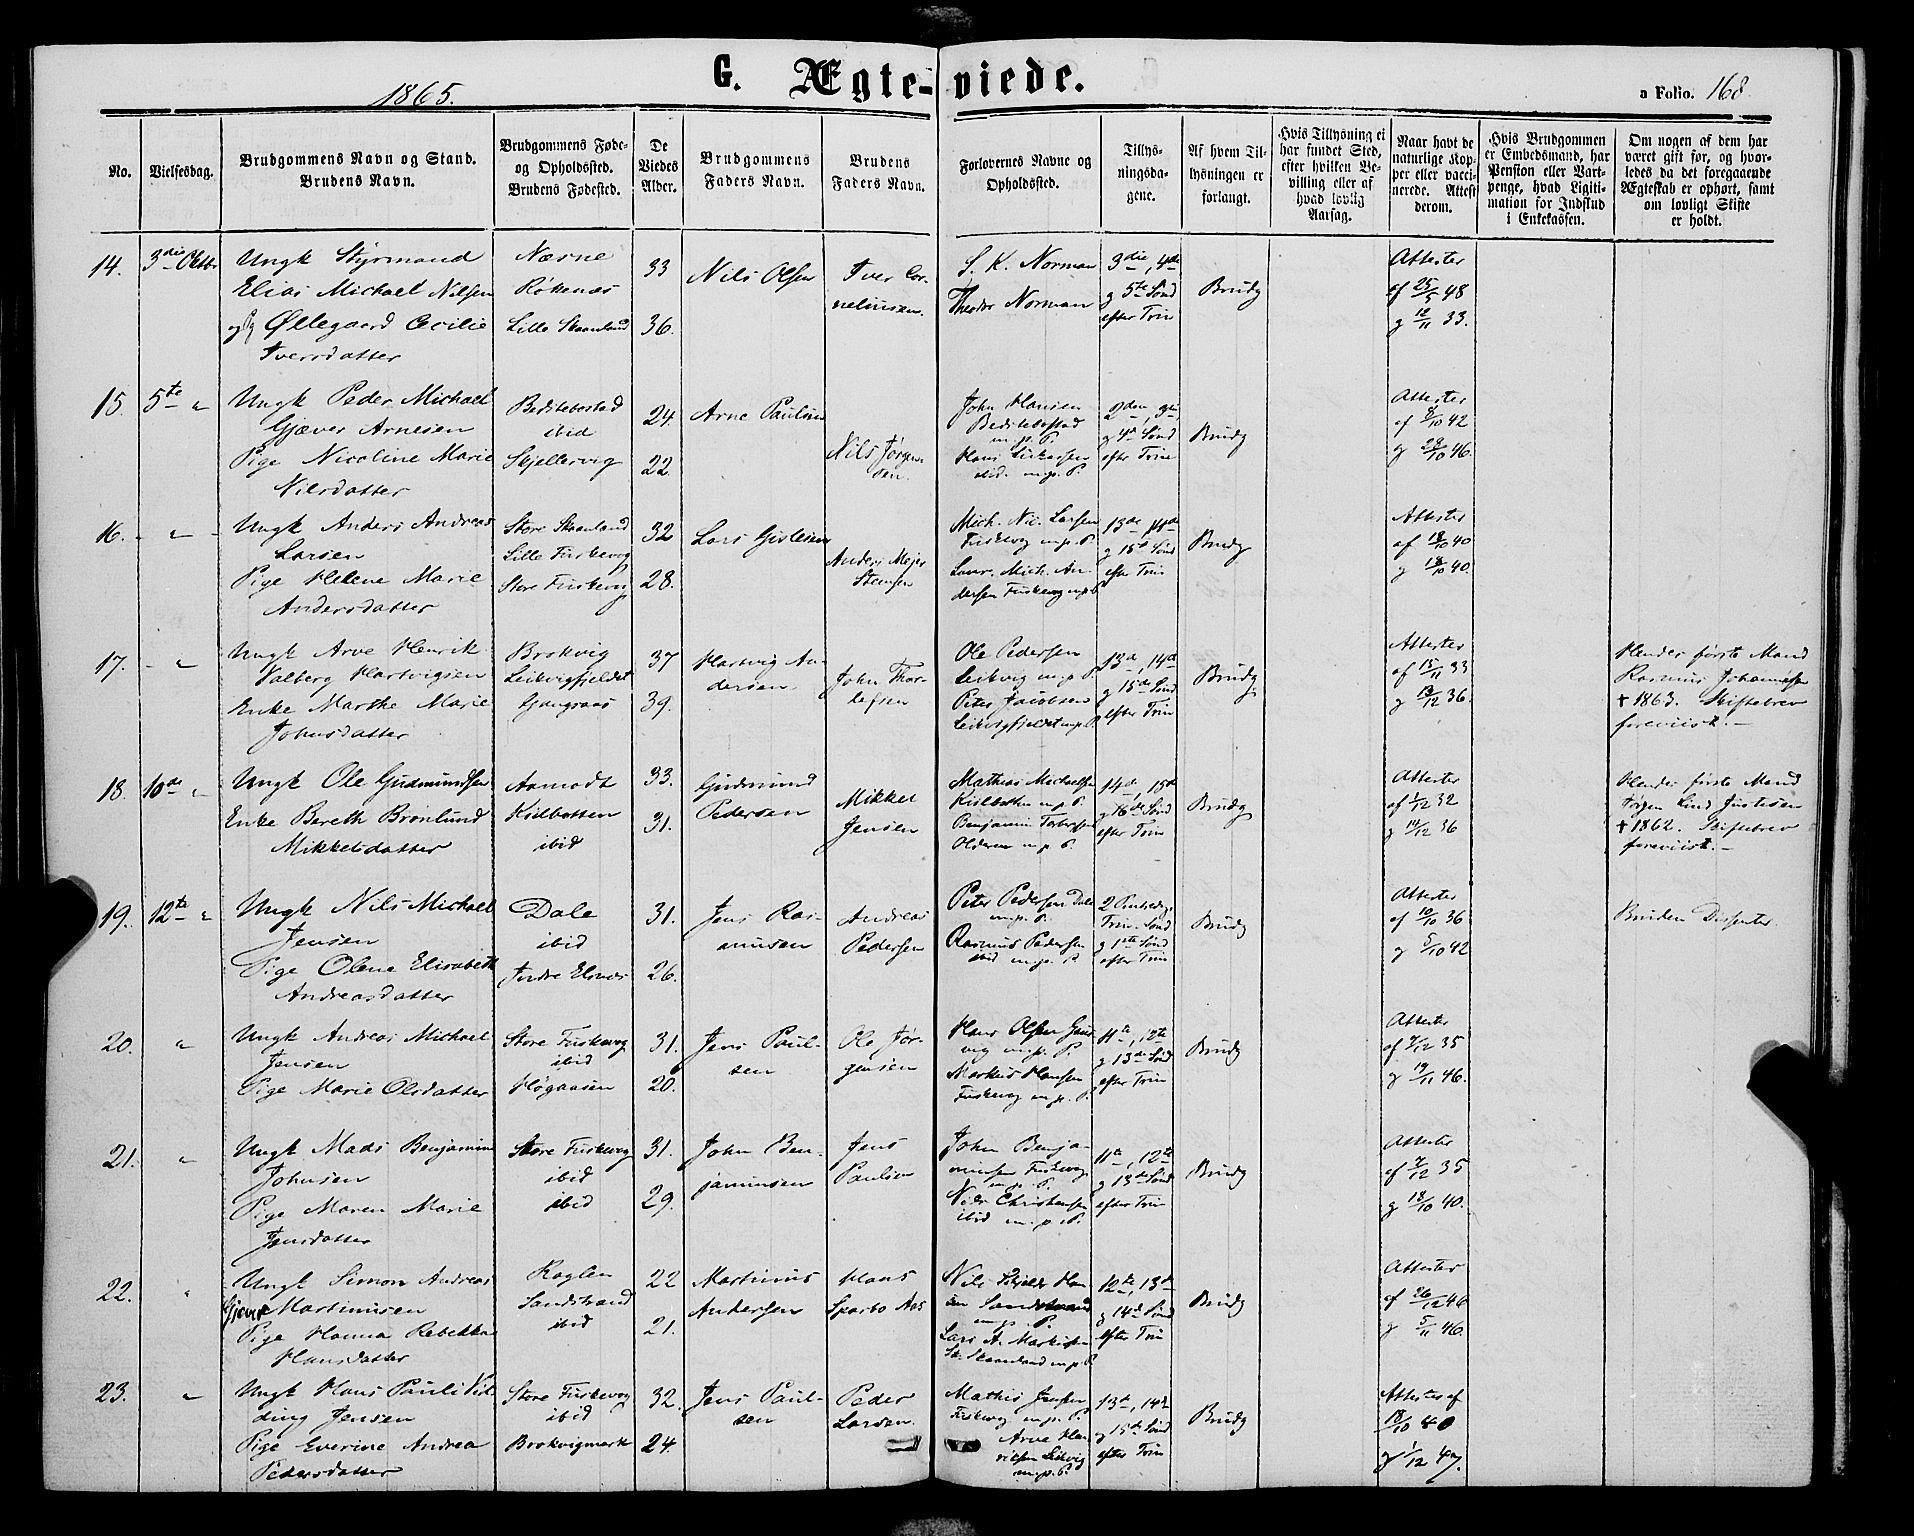 1865.
G. Ægte-viede.
a Folio. 168
No.
Vielsesdag.
Brudgommens Navn og Stand.
Brudens Navn.
Brudgommens Føde-
og Opholdssted.
Brudens Fødested.
De
Viedes
Alder.
Brudgommens
Faders Navn.
Brudens
Faders Navn.
Forlovernes Navne og
Opholdssted.
Tillys-
ningsda-
gene.
Af hvem Til-
lysningen er
forlangt.
Hvis Tillysning ei
har fundet Sted,
efter hvilken Be-
villing eller af
hvad lovlig
Aarsag.
Naar havt de
naturlige Kop-
per eller vacci-
nerede. Attest
derom.
Hvis Brudgommen
er Embedsmand, har
Pension eller Vart-
penge, hvad Ligiti-
mation for Indskud
i Enkekassen.
Om nogen af dem har
været gift før, og hvor-
ledes da det foregaaende
Ægteskab er ophørt, samt
om lovligt Skifte
er holdt.
14.
3die Oktbr
Ungk Styrmand
Elias Michael Nilsen
og P Øllegaard Cecilie
Iversdatter
Næsne
Røkenæs
Lille Skaanland
33
36.
Nils Olsen
Iver Cor-
neliussen.
S. K. Norman
Theodor Norman
3die, 4de
g 5te Sønd
efter Trin
Brudg
Attester
af 25/5 48
g 12/11 33.
15.
5te "
Ungk Peder Michael
Gjæver Arnesen
Pige Nicoline Marie
Nilsdatter
Breditebostad
ibid
Skjellervig
24.
22.
Arne Paulsen
Nils Jørgen-
sen.
John Hansen
m. p. P.
Hans
ibid. m. p. P.
2den, 3die
g 4de Sønd
efter Trin
Brudg
Attester
af 8/10 42
g 28/10 46.
16.
"
Ungk Anders Andreas
Larsen
Pige Helene Marie
Andersdatter
Store Skaanland
Lille Fuskevog
Store Fuskevog
32
28.
Lars Gislesen
Anders Mejer
Stensen
Mich. Nic. Larsen
Fuskevog m. p. P.
Laur. Mich. An-
dersen Fuskevog m. p. P.
13de, 14de
g 15de Sønd
efter Trin
Brudg
Attester
af 18/10 40
g 18/10 40.
17.
"
Ungk Arve Henrik
Valberg Hartvigsen
Enke Marthe Marie
Johnsdatter
Brokvig
Leikvigfjeldet
Gangsaas
37
39.
Hartvig An-
dersen.
John Thor-
lefsen
Ole Pedersen
Leikvig m. p. P.
Peter Jacobsen
Leikvigfjeldet m. p. P.
13de, 14de
g 15de Sønd
efter Trin
Brudg
Attester
af 15/11 33
g 13/12 36.
Hendes første Mand
Rasmus Johannesen
† 1863. Skiftebrev
foreviist. —
18.
10de "
Ungk Ole Gudmundsen
Enke Bereth Brønlund
Mikkelsdatter
Aamodt
Kilbotten
ibid
33.
31.
Gudmund
Pedersen
Mikkel
Jensen
Mathias Michaelsen
Kilbotten m. p. P.
Benjamin
m. p. P.
14de, 15de
g 16de Sønd
efter Trin
Brudg
Attester
af 1/12 32
g 14/12 36
Hendes første Mand
Jørgen Lind Justesen
† 1862. Skiftebrev
foreviist. —
19.
12te "
Ungk Nils Michael
Jensen
Pige Olena Elisabeth
Andreasdatter
Dale
ibid
Indre Elsnæs
31.
26.
Jens Ras-
mussen
Andreas
Pedersen
Peter Pedersen Dale
m. p. P.
Rasmus Pedersen
ibid m. p. P.
Trin. Sønd
g 1ste Sønd
efter Trin
Brudg
Attester
af 10/10 36
g 5/10 42
Bruden
20.
"
Ungk Andreas Michael
Jensen
Pige Marie Olsdatter
Store Fuskevog
ibid
Høgaasen
31.
20.
Jens Paul-
sen
Ole Jør-
gensen
Hans Olsen
m. p. P.
Markus Hansen
Fuskevog m. p. P.
11te, 12te
g 13de Sønd
efter Trin
Brudg
Attester
af 7/12 35
g 19/11 46.
21.
"
Ungk Mads Benjamin
Johnsen
Pige Maren Marie
Jensdatter
Store Fuskevog
ibid
ibid
31.
29.
John Ben-
jaminsen
Jens
Paulsen
John Benja-
minsen Fuskevog
m. p. P.
Nils Christensen
ibid m. p. P.
11te, 12te
g 13de Sønd
efter Trin
Brudg
Attester
af 7/12 35
g 18/10 40.
22.
"
Ungk Simon Andreas
Gjæver Martinusen
Pige Hanna Rebekka
Hansdatter
Roglen
Sandstrand
ibid
22
21.
Martinus
Andersen
Hans
Sparbo Aas
Nils Han-
sen Sandstrand
m. p. P.
Lars A. Markusen
St. Skaanland m. p. P.
12te, 13de
g 14de Sønd
efter Trin
Brudg
Attester
af 26/12 46
g 5/11 46.
23.
"
Ungk Hans Pauli Vid-
ding Jensen
Pige Everine Andrea
Pedersdatter
Store Fuskevog
ibid
Brokvigmark
32.
24.
Jens Paul-
sen
Peder
Larsen.
Mathis Jensen
Fuskevog m. p. P.
Arve Hen-
riksen Leikvig
m. p. P.
13de, 14de
g 15de Sønd
efter Trin
Brudg
Attester af
18/10 40
g 1/12 47.